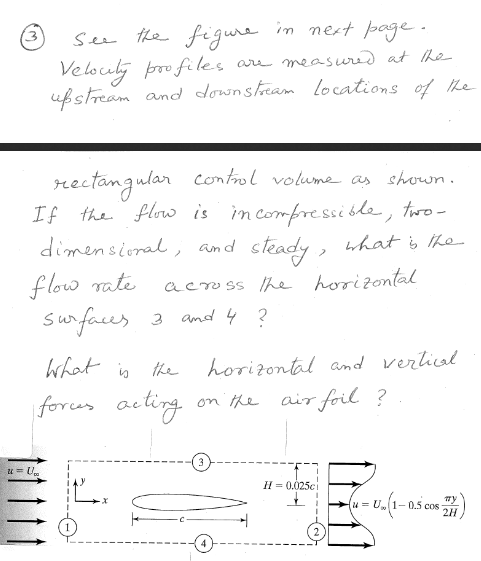 3 See the figure in next page.
Velocity profiles are measured at the
upstream and downstream locations of the
rectangular control volume as shown.
If the flow is incompressible, two-
dimensional, and steady, what is the
flow rate across the horizontal
surfaces 3 and 4 ?
What is the horizontal and vertical
forces acting on the airfoil ?
3
u = U∞
y
H = 0.025c
x
u = U∞(1– 0.5 cos πy/2H)
c
1
2
4